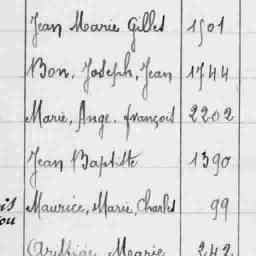 Jean Marie Gilles 1501
Bon, Joseph, Jean 1744
Marie, Ange, françois 2202
Jean Baptiste 1390
Maurice, Marie, Charles 99
Marie 242